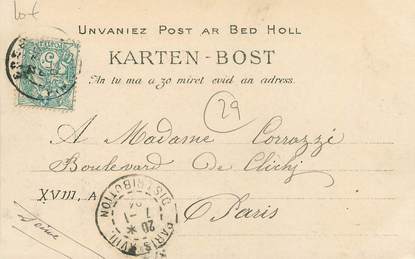 Lot
UNVANIEZ POST AR BED HOLL
KARTEN-BOST
An tu ma a zo miret evid an adress.
29
A Madame Corrazzi
Boulevard De Clichy
XVIII, A
Paris
Seine
PARIS XVIII
DISTRIBUTION
20
7 - 1